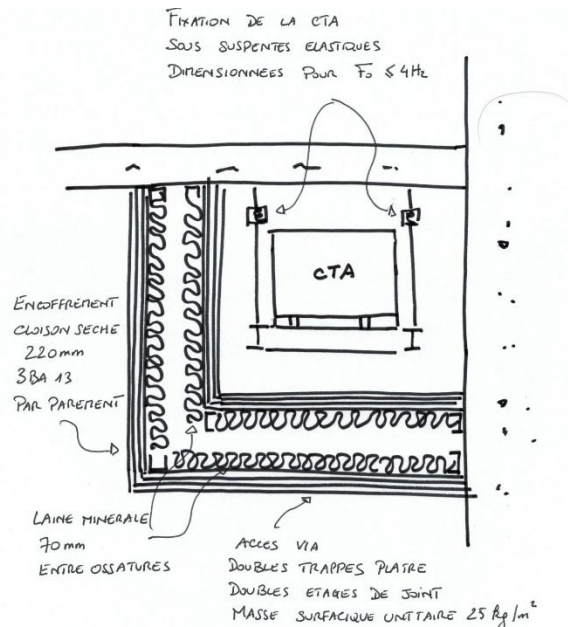 FIXATION DE LA CTA
SOUS SUSPENTES ELASTIQUES
DIMENSIONNEES POUR F₀ ≤ 4Hz
CTA
ENCOFFREMENT
CLOISON SECHE
220mm
3BA 13
PAR PAREMENT
LAINE MINERALE
70mm
ENTRE OSSATURES
ACCES VIA
DOUBLES TRAPPES PLATRE
DOUBLES ETAGES DE JOINT
MASSE SURFACIQUE UNITAIRE 25 kg/m²